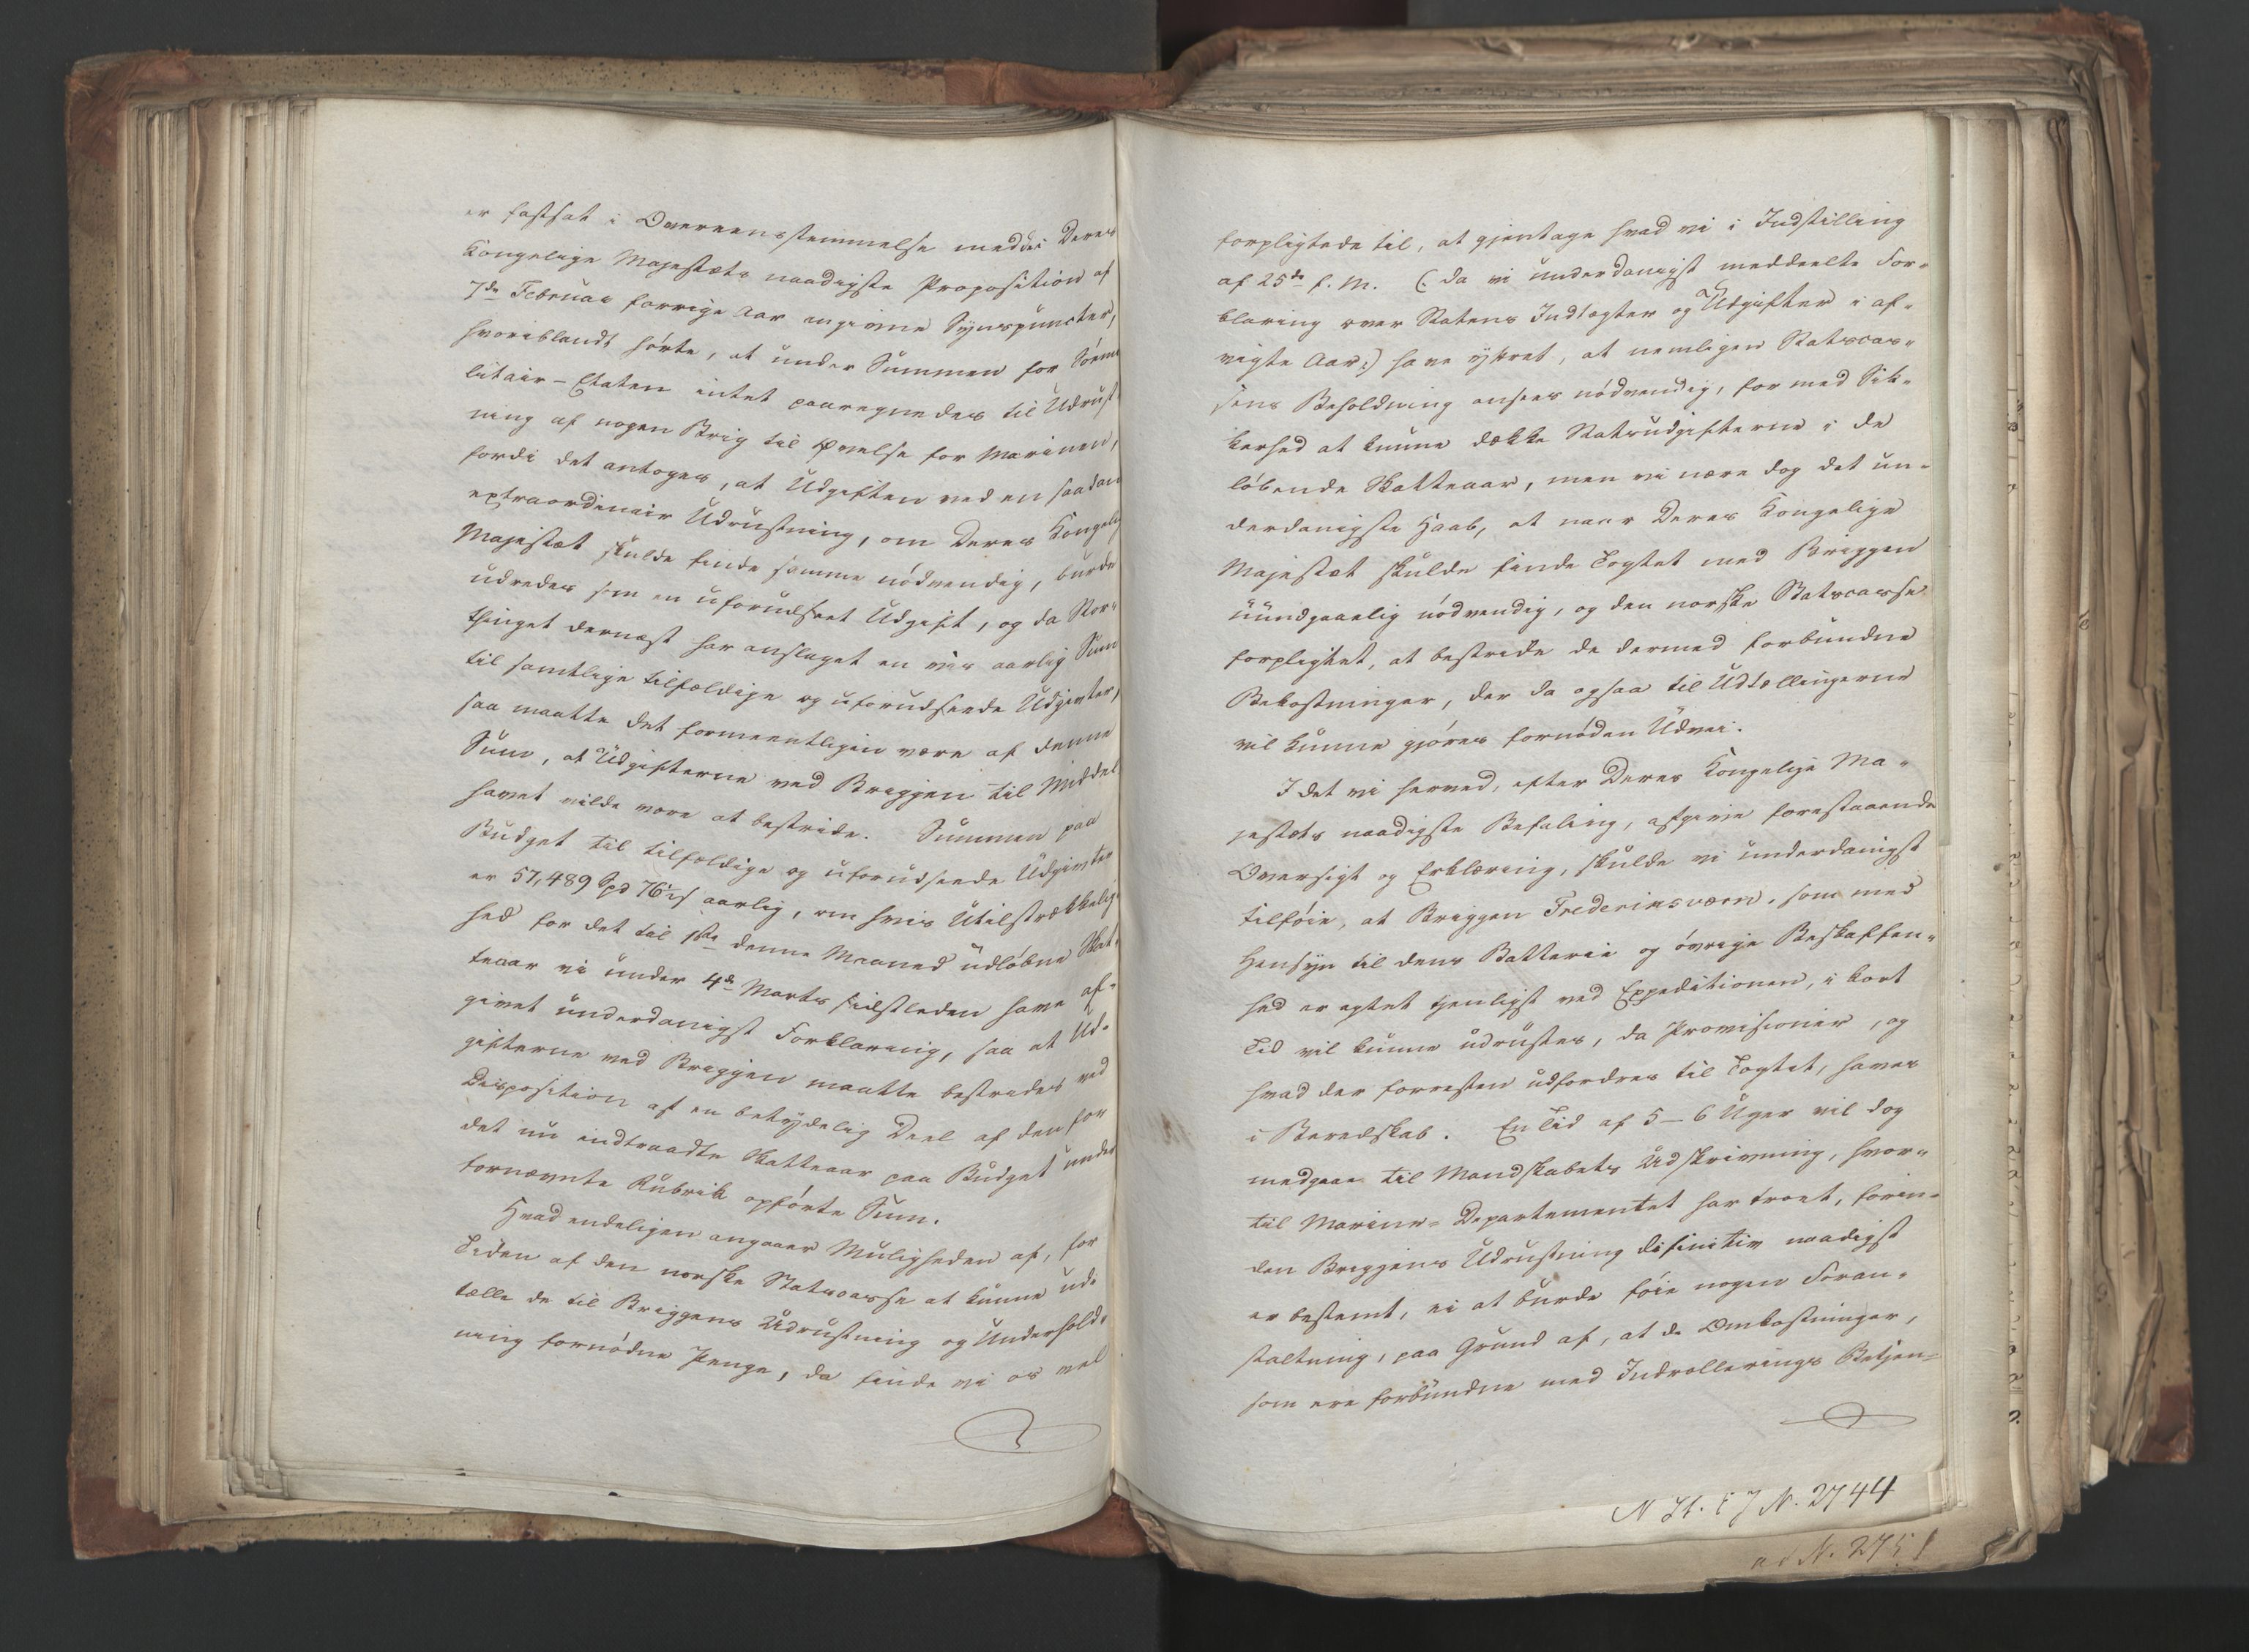 er fastsat i Overeensstemmelse med de i Deres
Kongelige Majestæts naadigste Proposition af
7de Februar forrige Aar angivne Synspuncter,
hvoriblandt hørte, at under Summen for Sømi
litair-Etaten intet paaregnedes til Udrust
ning af nogen Brig til Øvelse for Marinen,
fordi det antoges, at Udgiften ved en saadan
extraordinair Udrustning, om Deres Kongelig
Majestæt skulde finde samme nødvendig, burde
udredes som en uforudseet Udgift, og da Stor-
thinget dernæst har anslaget en vis aarlig Sum
til samtlige tilfældige og uforudseede Udgivter,
saa maatte det formeentligen være af denne
Sum, at Udgifterne ved Briggen til Middel
havet vilde være at bestride. Summen paa
Budget til tilfældige og uforudseede Udgivter
er 57,489 Spd 76 1/2 s aarlig, om hvis Utilstrækkelig
hed for det til 1ste denne Maaned udløbne Skat-
teaar vi under 4de Marts sidstleden have af-
givet underdanigst Forklaring, saa at Ud-
gifterne ved Briggen maatte bestrides ved
Disposition af en betydelig Deel af den for
det nu indtraadte Skatteaar paa Budget under
fornævnte Rubrik opførte Sum.
Hvad endeligen angaaer Muligheden af, for
Tiden af den norske Statscasse at kunne ud-
tælle de til Briggens Udrustning og Underhold-
ning fornødne Penge, da finde vi os vel
forpligtede til, at gjentage hvad vi i Indstilling
af 25de f. M. (: da vi underdanigst meddeelte For-
klaring over Statens Indtægter og Udgifter i af-
vigte Aar:) have yttret, at nemligen Statscas-
sens Beholdning ansees nødvendig, for med Sik-
kerhed at kunne dække Statsudgifterne i de
løbende Skatteaar, men vi nære dog det un-
derdanigste Haab, at naar Deres Kongelige
Majestæt skulde finde Togtet med Briggen
uundgaaelig nødvendig, og den norske Statscasse
forpligtet, at bestride de dermed forbundne
Bekostninger, der da ogsaa til Udtællingerne
vil kunne gjøres fornøden Udvei.
I det vi herved, efter Deres Kongelige Ma-
jestæts naadigste Befaling, afgive forestaaende
Oversigt og Erklæring, skulde vi underdanigst
tilføie, at Briggen Fredericsværn, som med
Hensyn til dens Batterie og øvrige Beskaffen-
hed er agtet tjenligst ved Expeditionen, i kort
Tid vil kunne udrustes, da Provisioner, og
hvad der forresten udfordres til Togtet, haves
i Beredskab. En Tid af 5-6 Uger vil dog
medgaae til Mandskabets Udskrivning, hvor-
til Marine-Departementet har troet, forin-
den Briggens Udrustning definitiv naadigst
er bestemt, ei at burde føie nogen Foran-
staltning, paa Grund af, at de Omkostninger,
som ere forbundne med Indrullerings Betjen-
N St. E J N. 2744
ad N. 2751